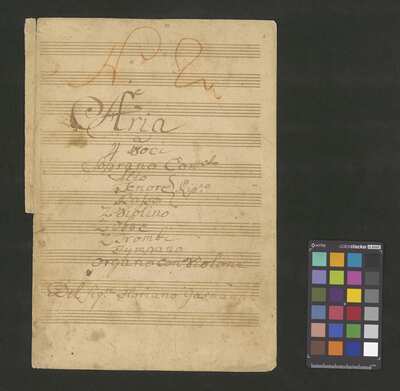 Aria
4 Voci
Soprano Conc.to
Alto
Tenore Rip.no
Basso
2 Violino
2 Oboe
2 Trombe
Tympano
Organo con Violone
Del Sig.re Floriano
colorchecker